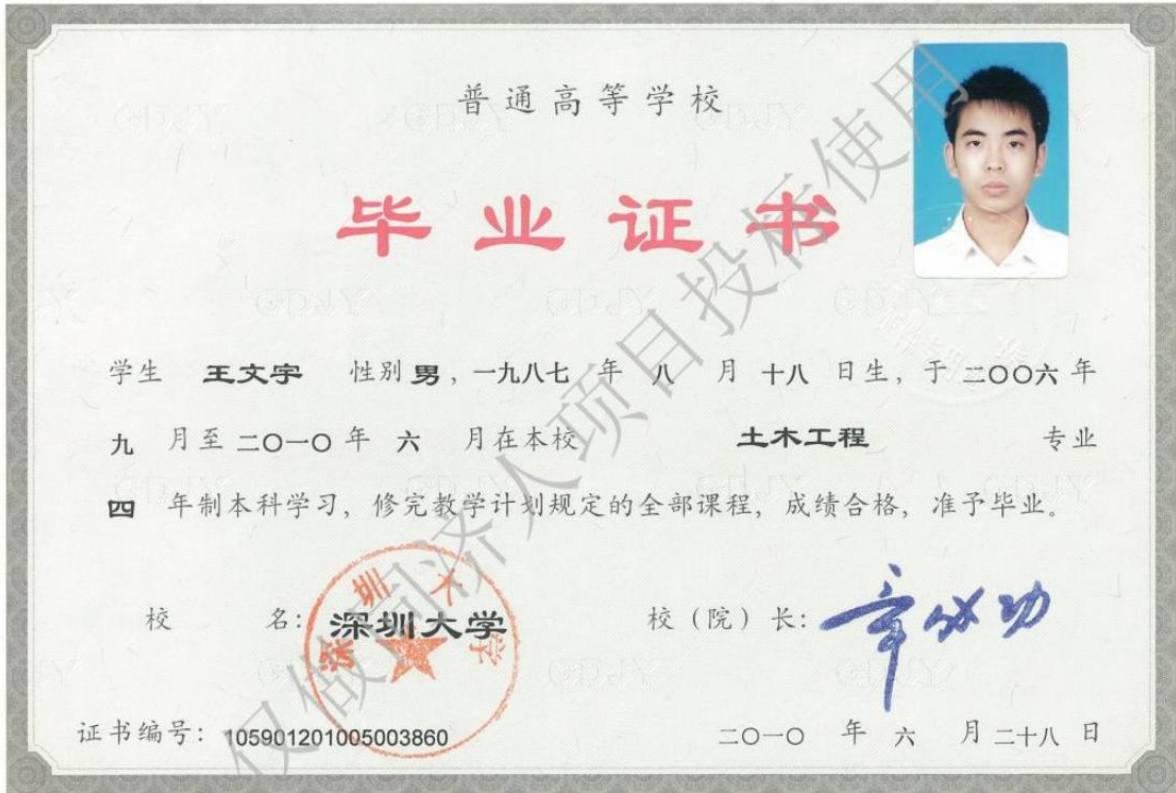 普通高等学校
毕业证书
学生 王文宇 性别 男，一九八七 年 八 月 十八 日生，于 二〇〇六 年
九 月至 二〇一〇 年 六 月在本校 土木工程 专业
四 年制本科学习，修完教学计划规定的全部课程，成绩合格，准予毕业。
校 名： 深圳大学 校（院）长： 章必功
深圳大学
证书编号：105901201005003860 二〇一〇 年 六 月 二十八 日
仅做同济人项目投标使用
GDJY